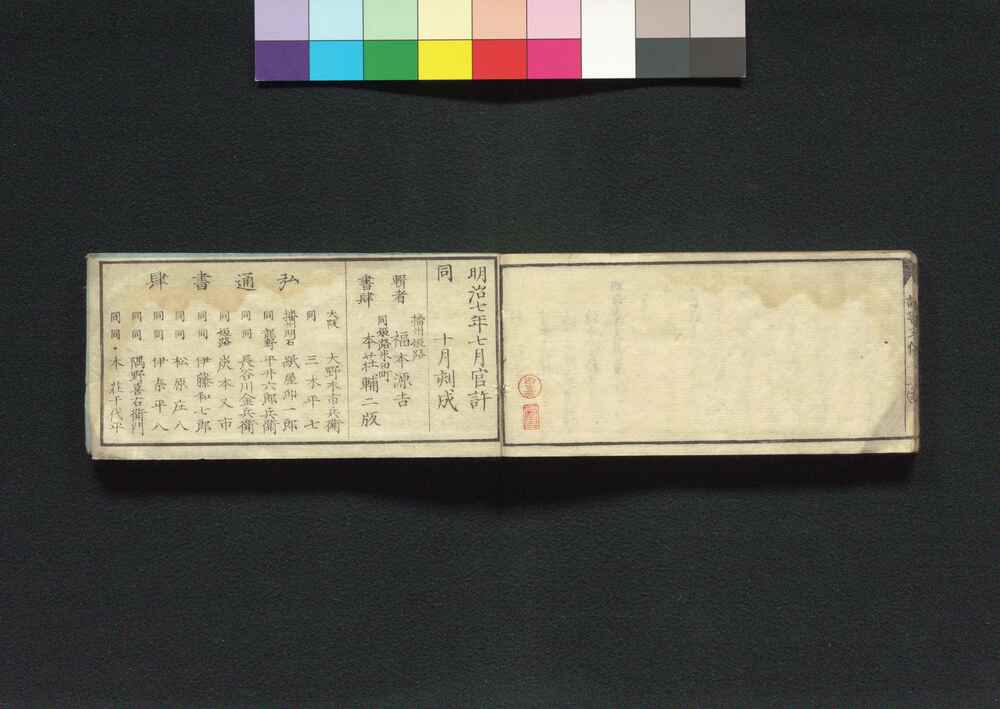 明治七年七月官許
同　十月刻成
播州姫路
輯者　福本源吉
同姫路米田町
書肆　本荘輔二版
弘通書肆
大阪　大野木市兵衛
同　三木平七
播州明石　紙屋卯一郎
同龍野　平井六郎兵衛
同同　長谷川金兵衛
同姫路　炭本又市
同同　伊藤和七郎
同同　松原庄八
同同　伊奈平八
同同　隅野喜右衛門
同同　木荘千代平